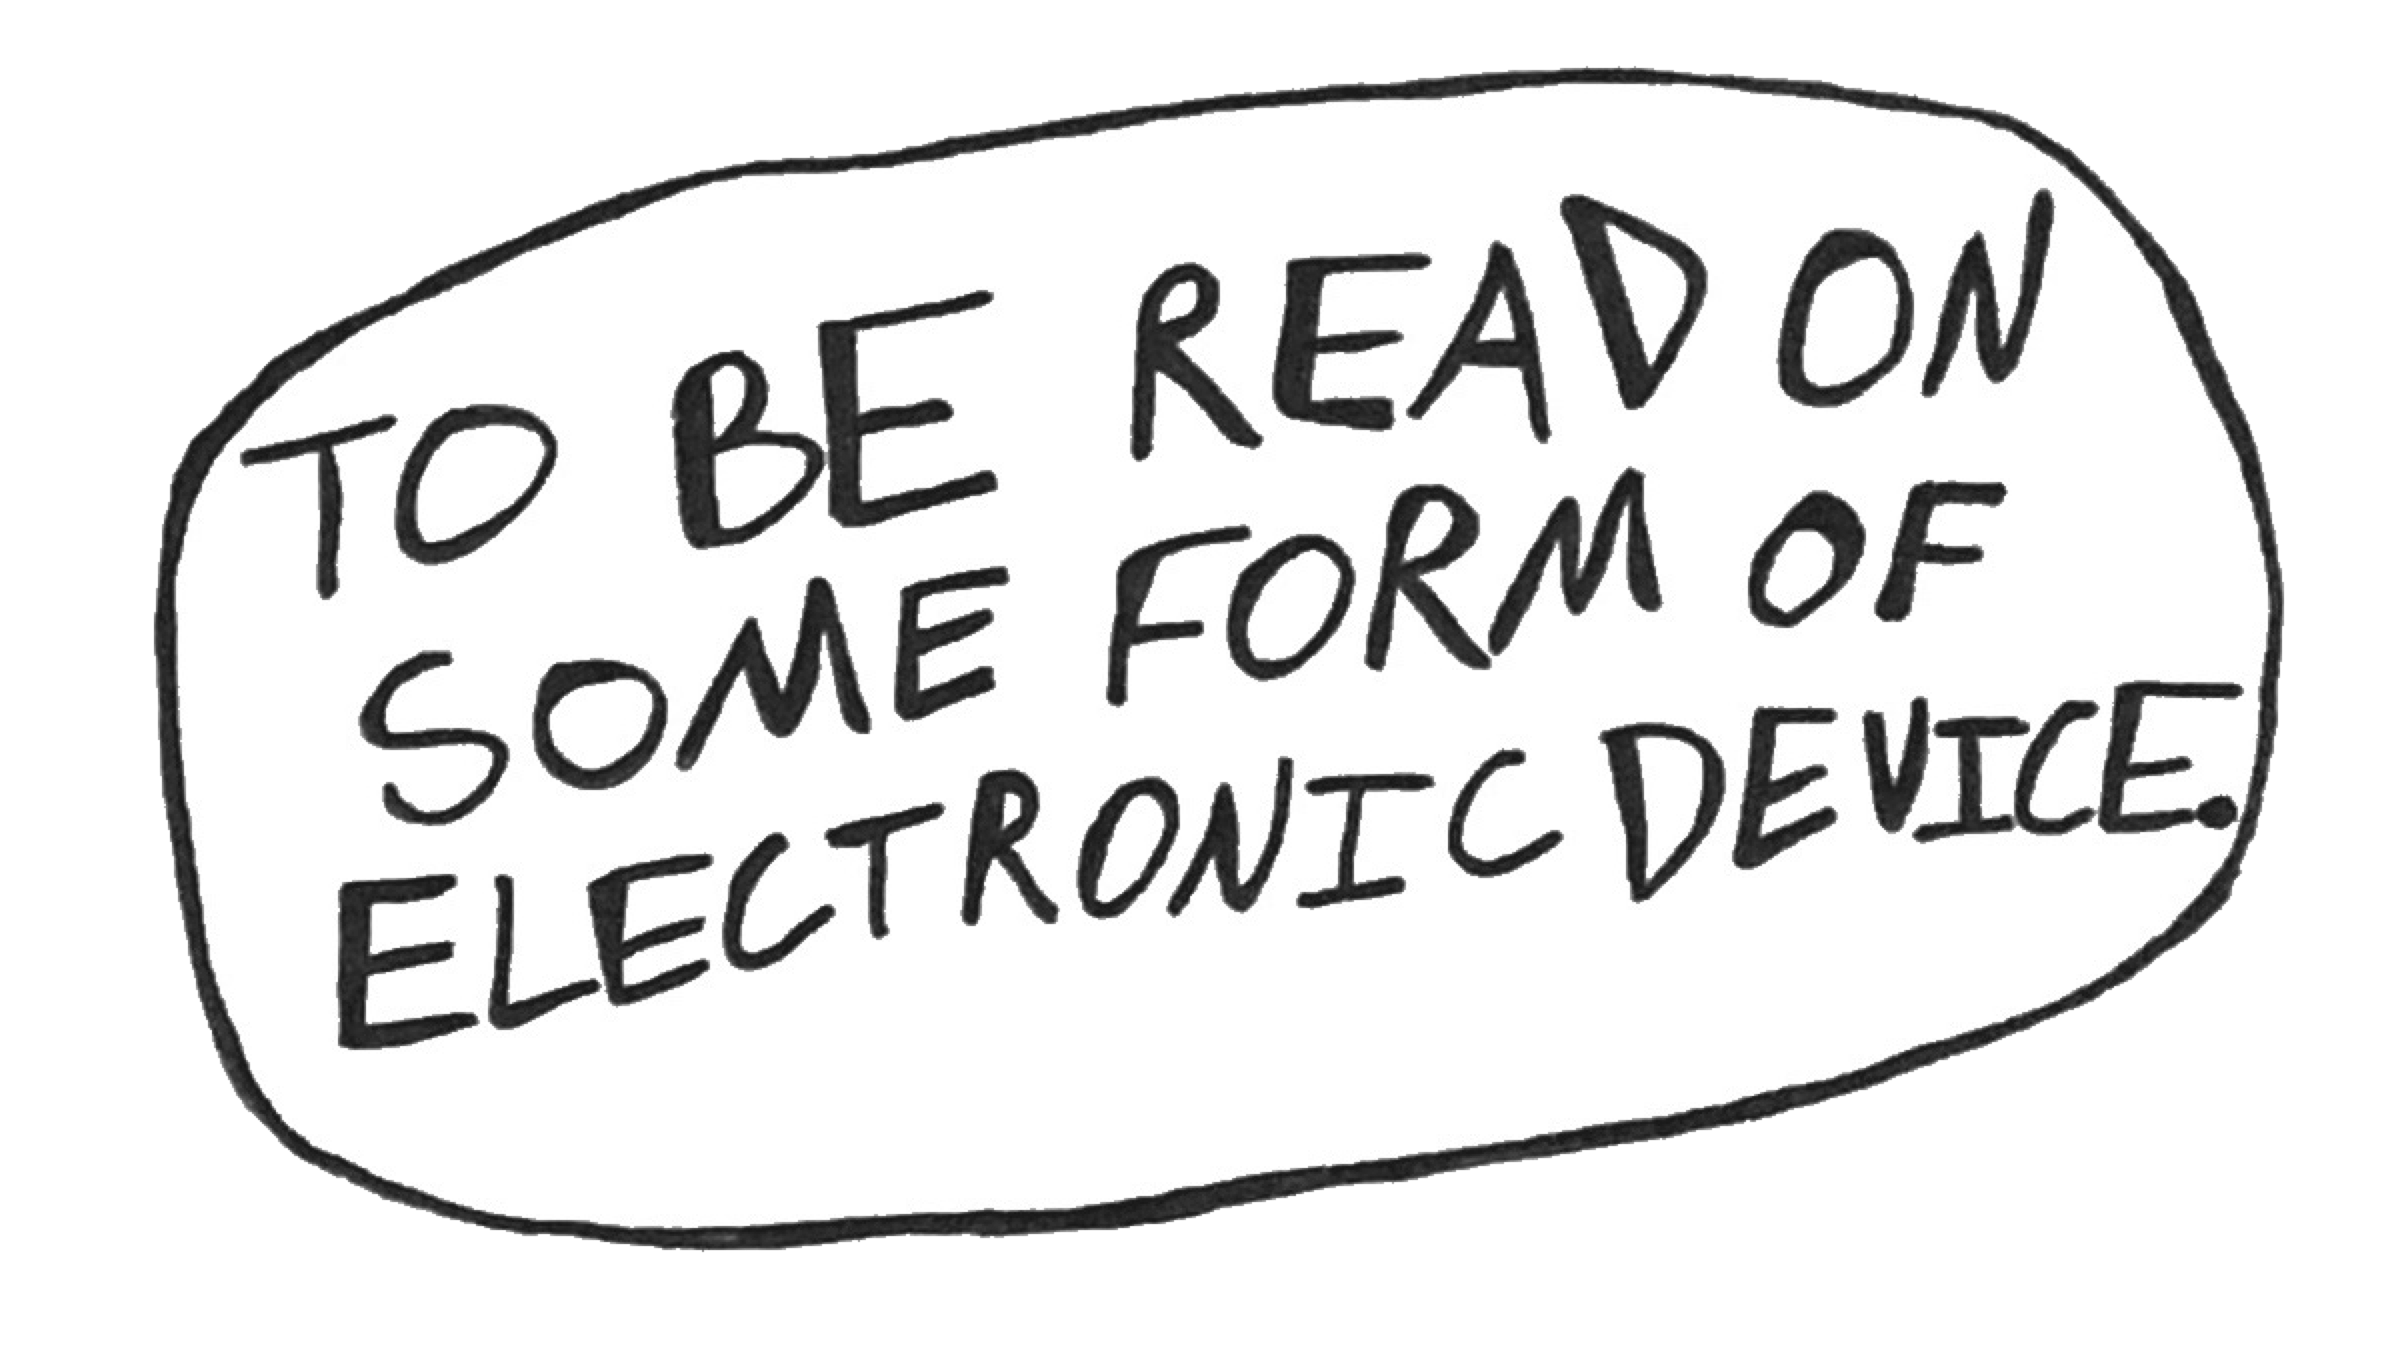 TO BE READ ON
SOME FORM OF
ELECTRONIC DEVICE.